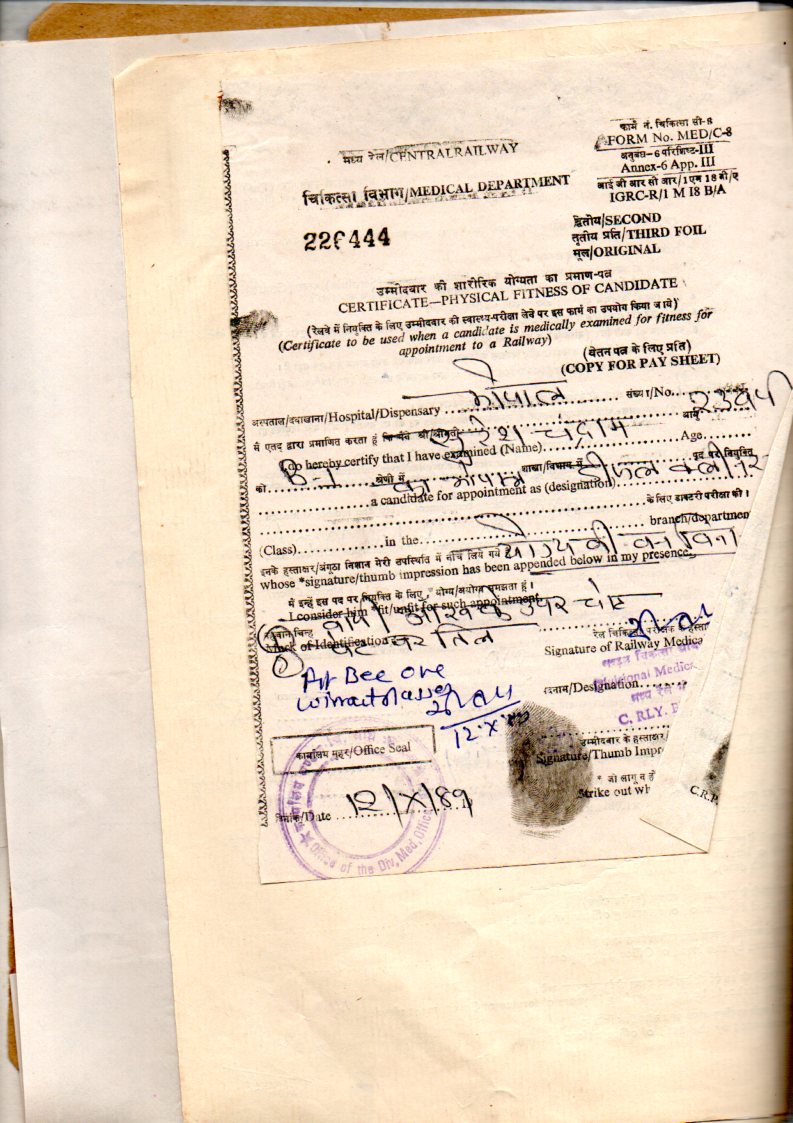 फार्म नं. चिकित्सा सी-8
FORM No. MED/C-8
मध्य रेल/CENTRAL RAILWAY
अनुबंध-6 परिशिष्ट-III
Annex-6 App. III
आई जी आर सी आर/1 एम 18 बी/ए
IGRC-R/1 M I8 B/A
चिकित्सा विभाग/MEDICAL DEPARTMENT
226444
द्वितीय/SECOND
तृतीय प्रति/THIRD FOIL
मूल/ORIGINAL
उम्मीदवार की शारीरिक योग्यता का प्रमाण-पत्र
CERTIFICATE—PHYSICAL FITNESS OF CANDIDATE
(रेलवे में नियुक्ति के लिए उम्मीदवार की स्वास्थ्य-परीक्षा लेने पर इस फार्म का उपयोग किया जाये)
(Certificate to be used when a candidate is medically examined for fitness for
appointment to a Railway)
(वेतन पत्र के लिए प्रति)
(COPY FOR PAY SHEET)
अस्पताल/दवाखाना/Hospital/Dispensary भोपाल संख्या/No.
मैं एतद् द्वारा प्रमाणित करता हूं आयु
I do hereby certify that I have examined (Name) Age
को B-1 श्रेणी में शाखा/विभाग में पद पर नियुक्ति
a candidate for appointment as (designation)
के लिए डाक्टरी परीक्षा की।
(Class) in the branch/departmen
इनके हस्ताक्षर/अंगूठा निशान मेरी उपस्थिति में नीचे लिये गये
whose *signature/thumb impression has been appended below in my presence.
मैं इन्हें इस पद पर नियुक्ति के लिए *योग्य/अयोग्य समझता हूं।
I consider him *fit/unfit for such appointment.
पहचान चिन्ह
Mark of Identification पेट पर तिल
Signature of Railway Medica
Fit Bee one
पदनाम/Designation
Divisional Medic
मध्य रेल
C. RLY.
12.X
कार्यालय मुहर/Office Seal
उम्मीदवार के हस्ताक्षर/
Signature/Thumb Impr
* जो लागू न हो
Strike out wh
C.R.P.
दिनांक/Date 12/X/89
Office of the Div. Med. Office